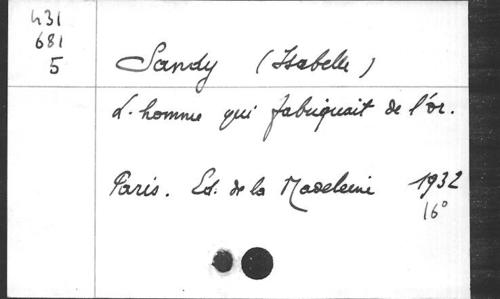 431
681
5
Sandy (Isabelle)
L'homme qui fabriquait de l'or.
Paris. Ed. de la Madeleine 1932
16°